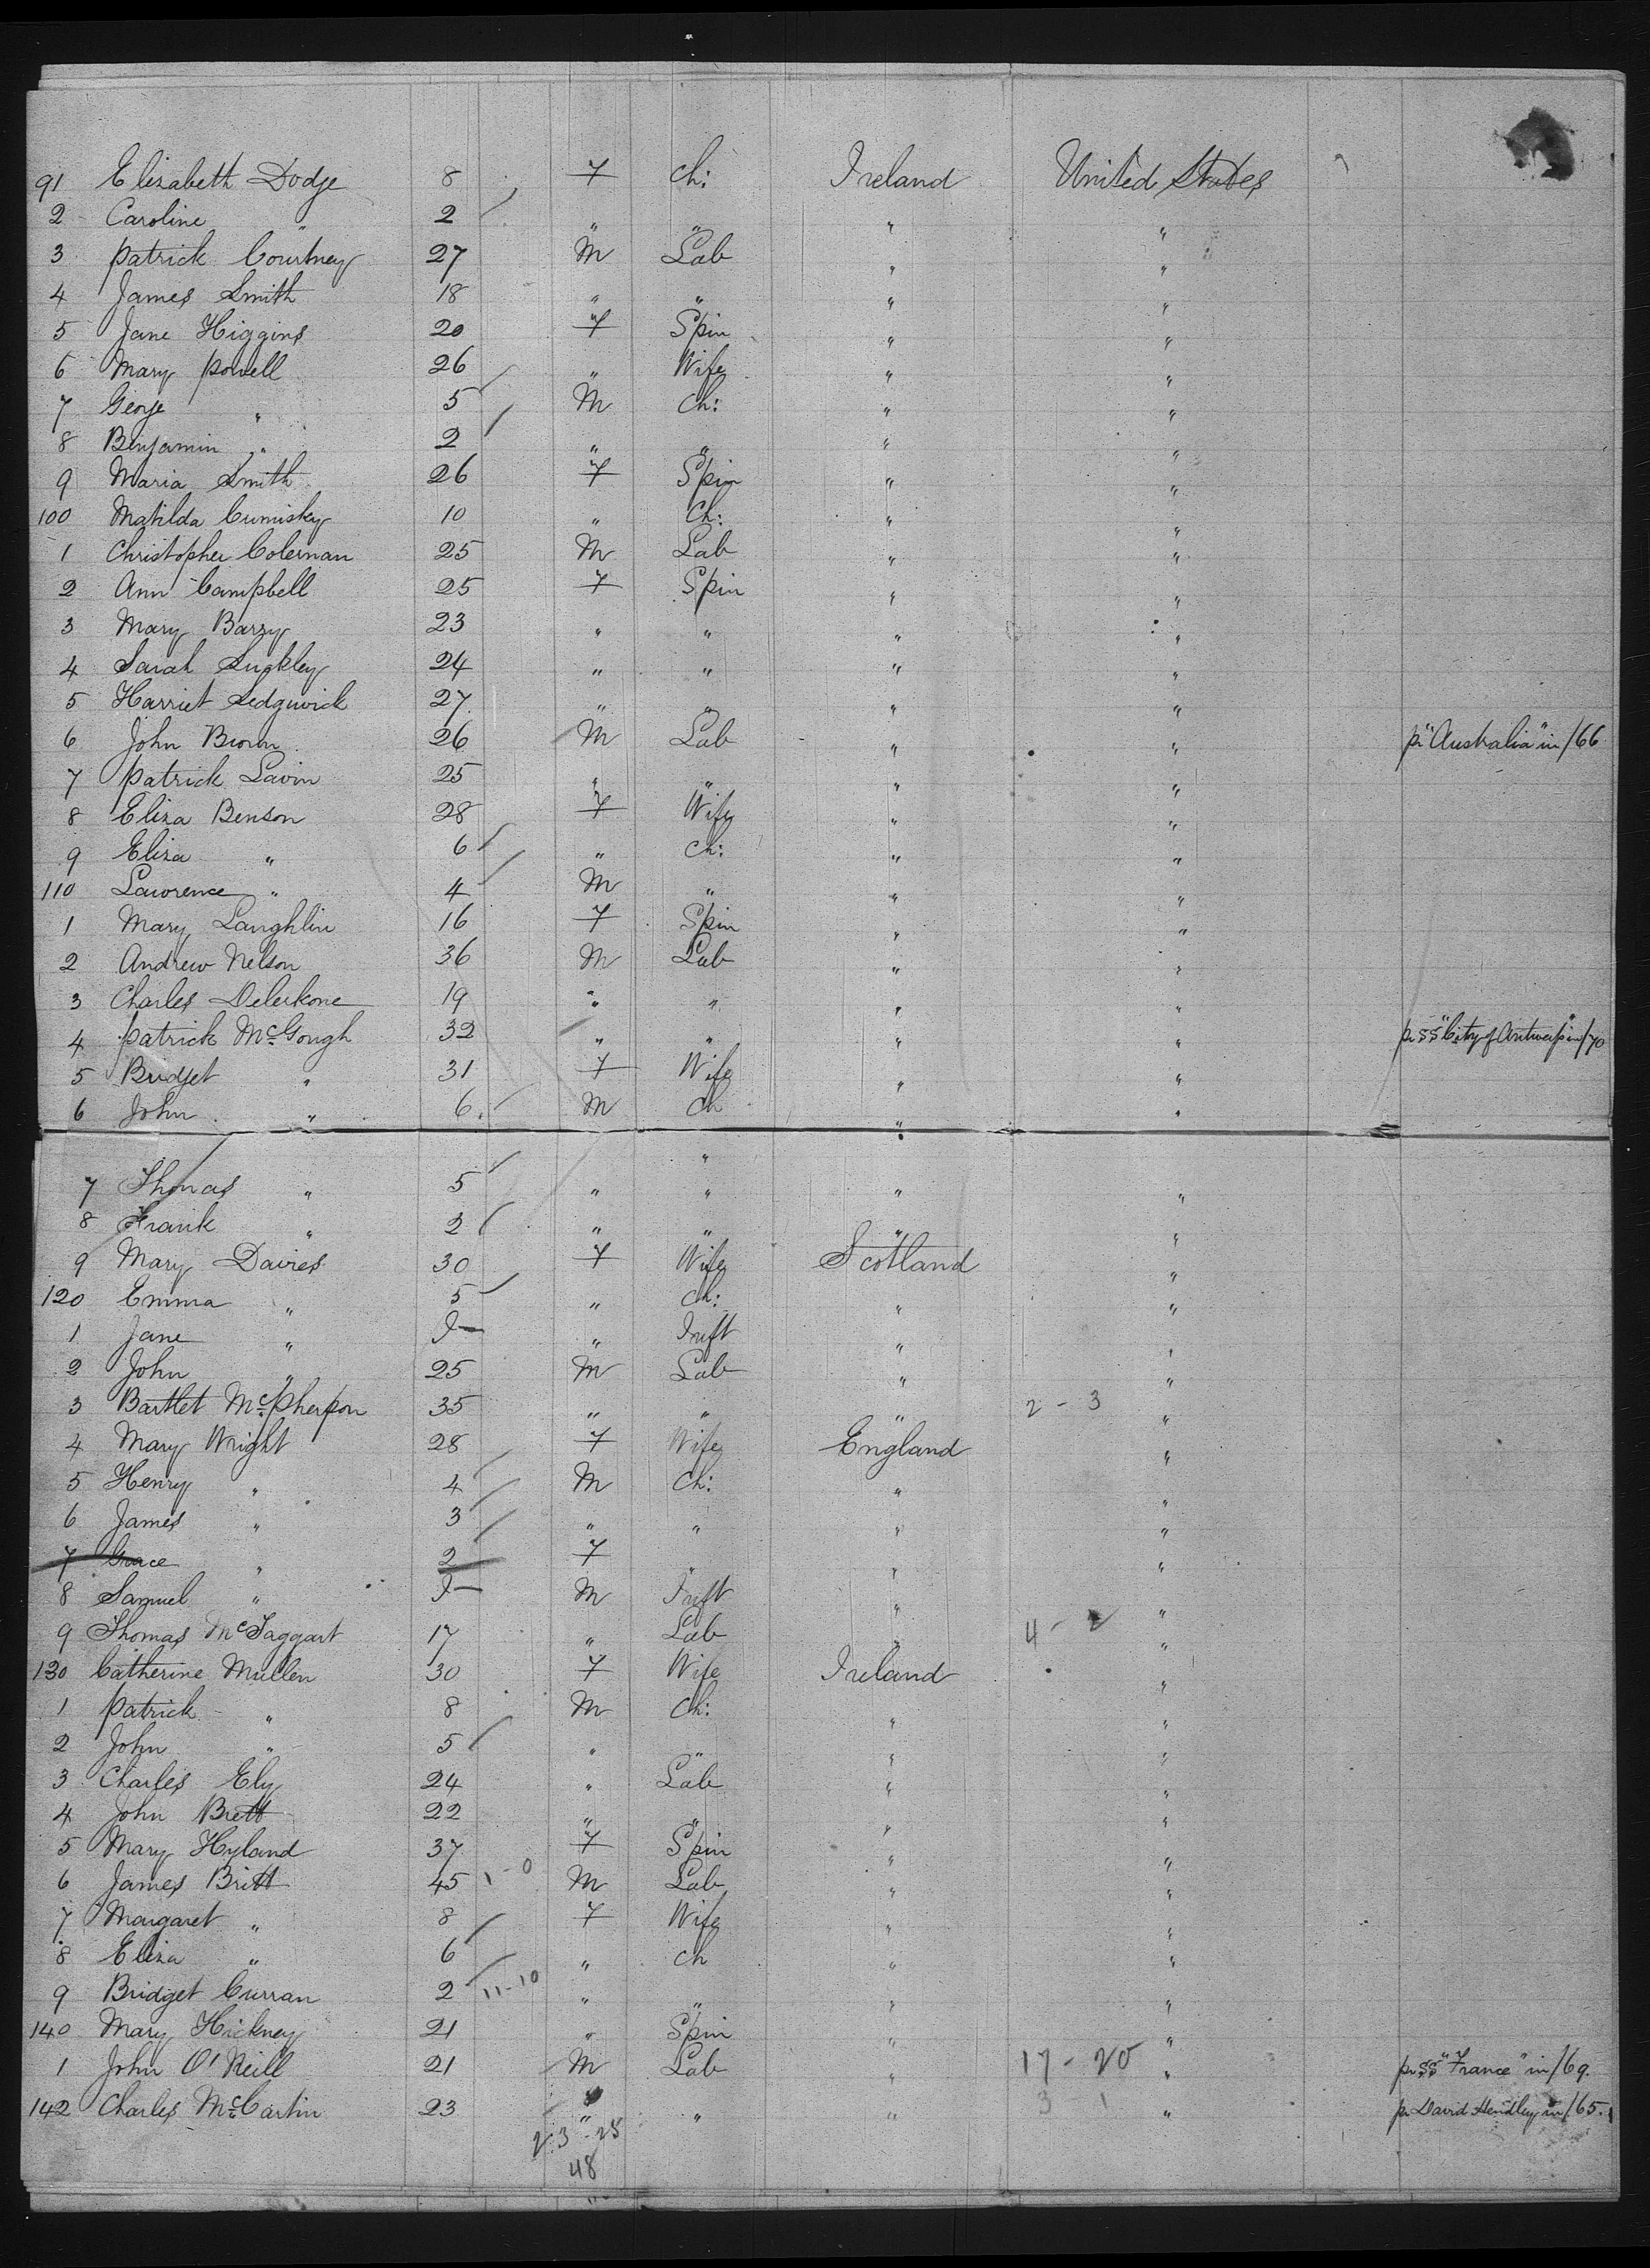 91 Elizabeth Dodge 8 F Ch: Ireland United States
2 Caroline " 2 " " " "
3 Patrick Courtney 27 M Lab " "
4 James Smith 18 " " " "
5 Jane Higgins 20 F Spin " "
6 Mary Powell 26 " Wife " "
7 George " 5 M Ch: " "
8 Benjamin " 2 " " " "
9 Maria Smith 26 F Spin " "
100 Matilda Cumisky 10 " Ch: " "
1 Christopher Coleman 25 M Lab " "
2 Ann Campbell 25 F Spin " "
3 Mary Barry 23 " " " "
4 Sarah 24 " " " "
5 Harriet Sedgwick 27 " " " "
6 John Brown 26 M Lab " " pr "Australia" in /66
7 Patrick Lavin 25 " " " "
8 Eliza Benson 28 F Wife " "
9 Eliza " 6 " Ch: " "
110 Lawrence " 4 M " " "
1 Mary Laughlin 16 F Spin " "
2 Andrew Nelson 36 M Lab " "
3 Charles 19 " " " "
4 Patrick McGough 32 " " " " pr SS "City of Antwerp" in /70
5 Bridget " 31 F Wife " "
6 John " 6 M Ch " "
7 Thomas " 5 " " " "
8 Frank " 2 " " " "
9 Mary Davies 30 F Wife Scotland "
120 Emma " 5 " Ch: " "
1 Jane " I " Inft " "
2 John " 25 M Lab " "
3 Bartlet McPherson 35 " " " 2 - 3 "
4 Mary Wright 28 F Wife England "
5 Henry " 4 M Ch: " "
6 James " 3 " " " "
7 Grace " 2 F " " "
8 Samuel " I M Inft " "
9 Thomas McTaggart 17 " Lab " 4 - 2 "
130 Catherine Mullen 30 F Wife Ireland "
1 Patrick " 8 M Ch: " "
2 John " 5 " " " "
3 Charles Ely 24 " Lab " "
4 John Brett 22 " " " "
5 Mary Hyland 37 F Spin " "
6 James Britt 45 1 - 0 M Lab " "
7 Margaret " 8 F Wife " "
8 Eliza " 6 " Ch " "
9 Bridget Curran 2 11-10 " " " "
140 Mary Hickney 21 " Spin " "
1 John O'Neill 21 M Lab " 17 - 20 " pr SS "France" in /69.
142 Charles McCartin 23 " " " 3 1 " pr David Hendley in /65.
23 - 25
48